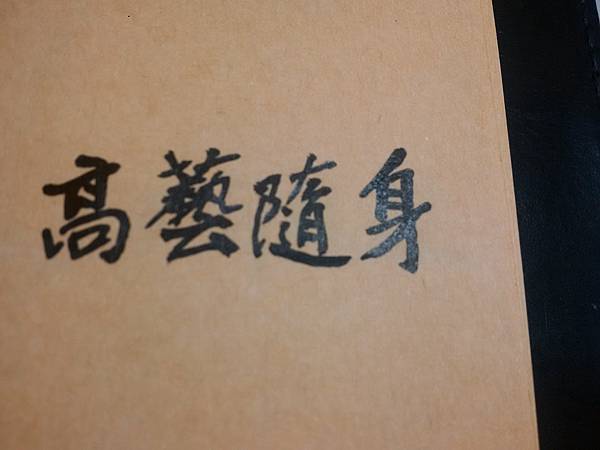 高藝隨身